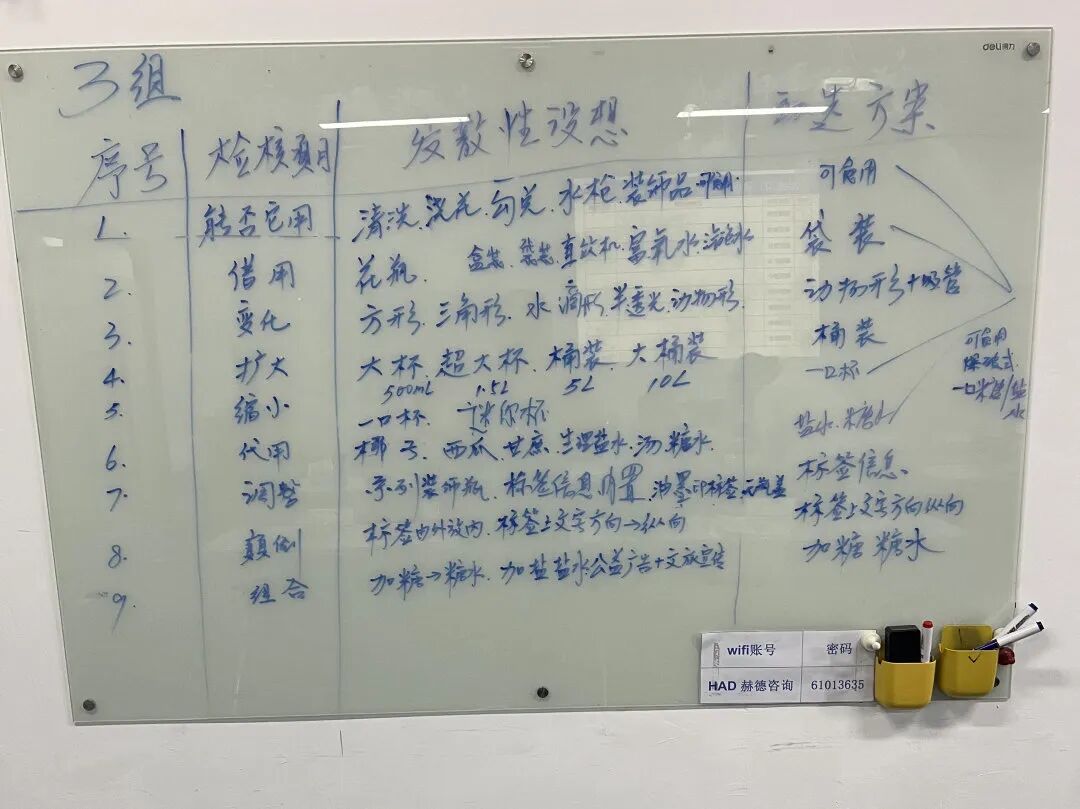 deli 得力
3组
序号 检核项目 发散性设想 方案
1. 能否它用 清洗.浇花.勾兑.水枪.装饰品.可食用 可食用
2. 借用 花瓶. 盒装.袋装.直饮机.富氧水. 袋装
3. 变化 方形.三角形.水滴形.半透光.动物形. 动物形+吸管
4. 扩大 大杯.超大杯.桶装.大桶装 桶装
500mL 1.5L 5L 10L
5. 缩小 一口杯.迷尔杯 一口杯
6. 代用 椰子.西瓜.甘蔗.生理盐水.汤.糖水. 盐水.糖水
7. 调整 系列装饰瓶.标签信息内置.油墨印标签.无瓶盖 标签信息.
8. 颠倒 标签由外放内.标签上文字方向→纵向 标签上文字方向纵向
9. 组合 加糖→糖水.加盐盐水公益广告+文旅宣传 加糖糖水
可食用
爆破式
一口/盐
水
wifi账号 密码
HAD 赫德咨询 61013635